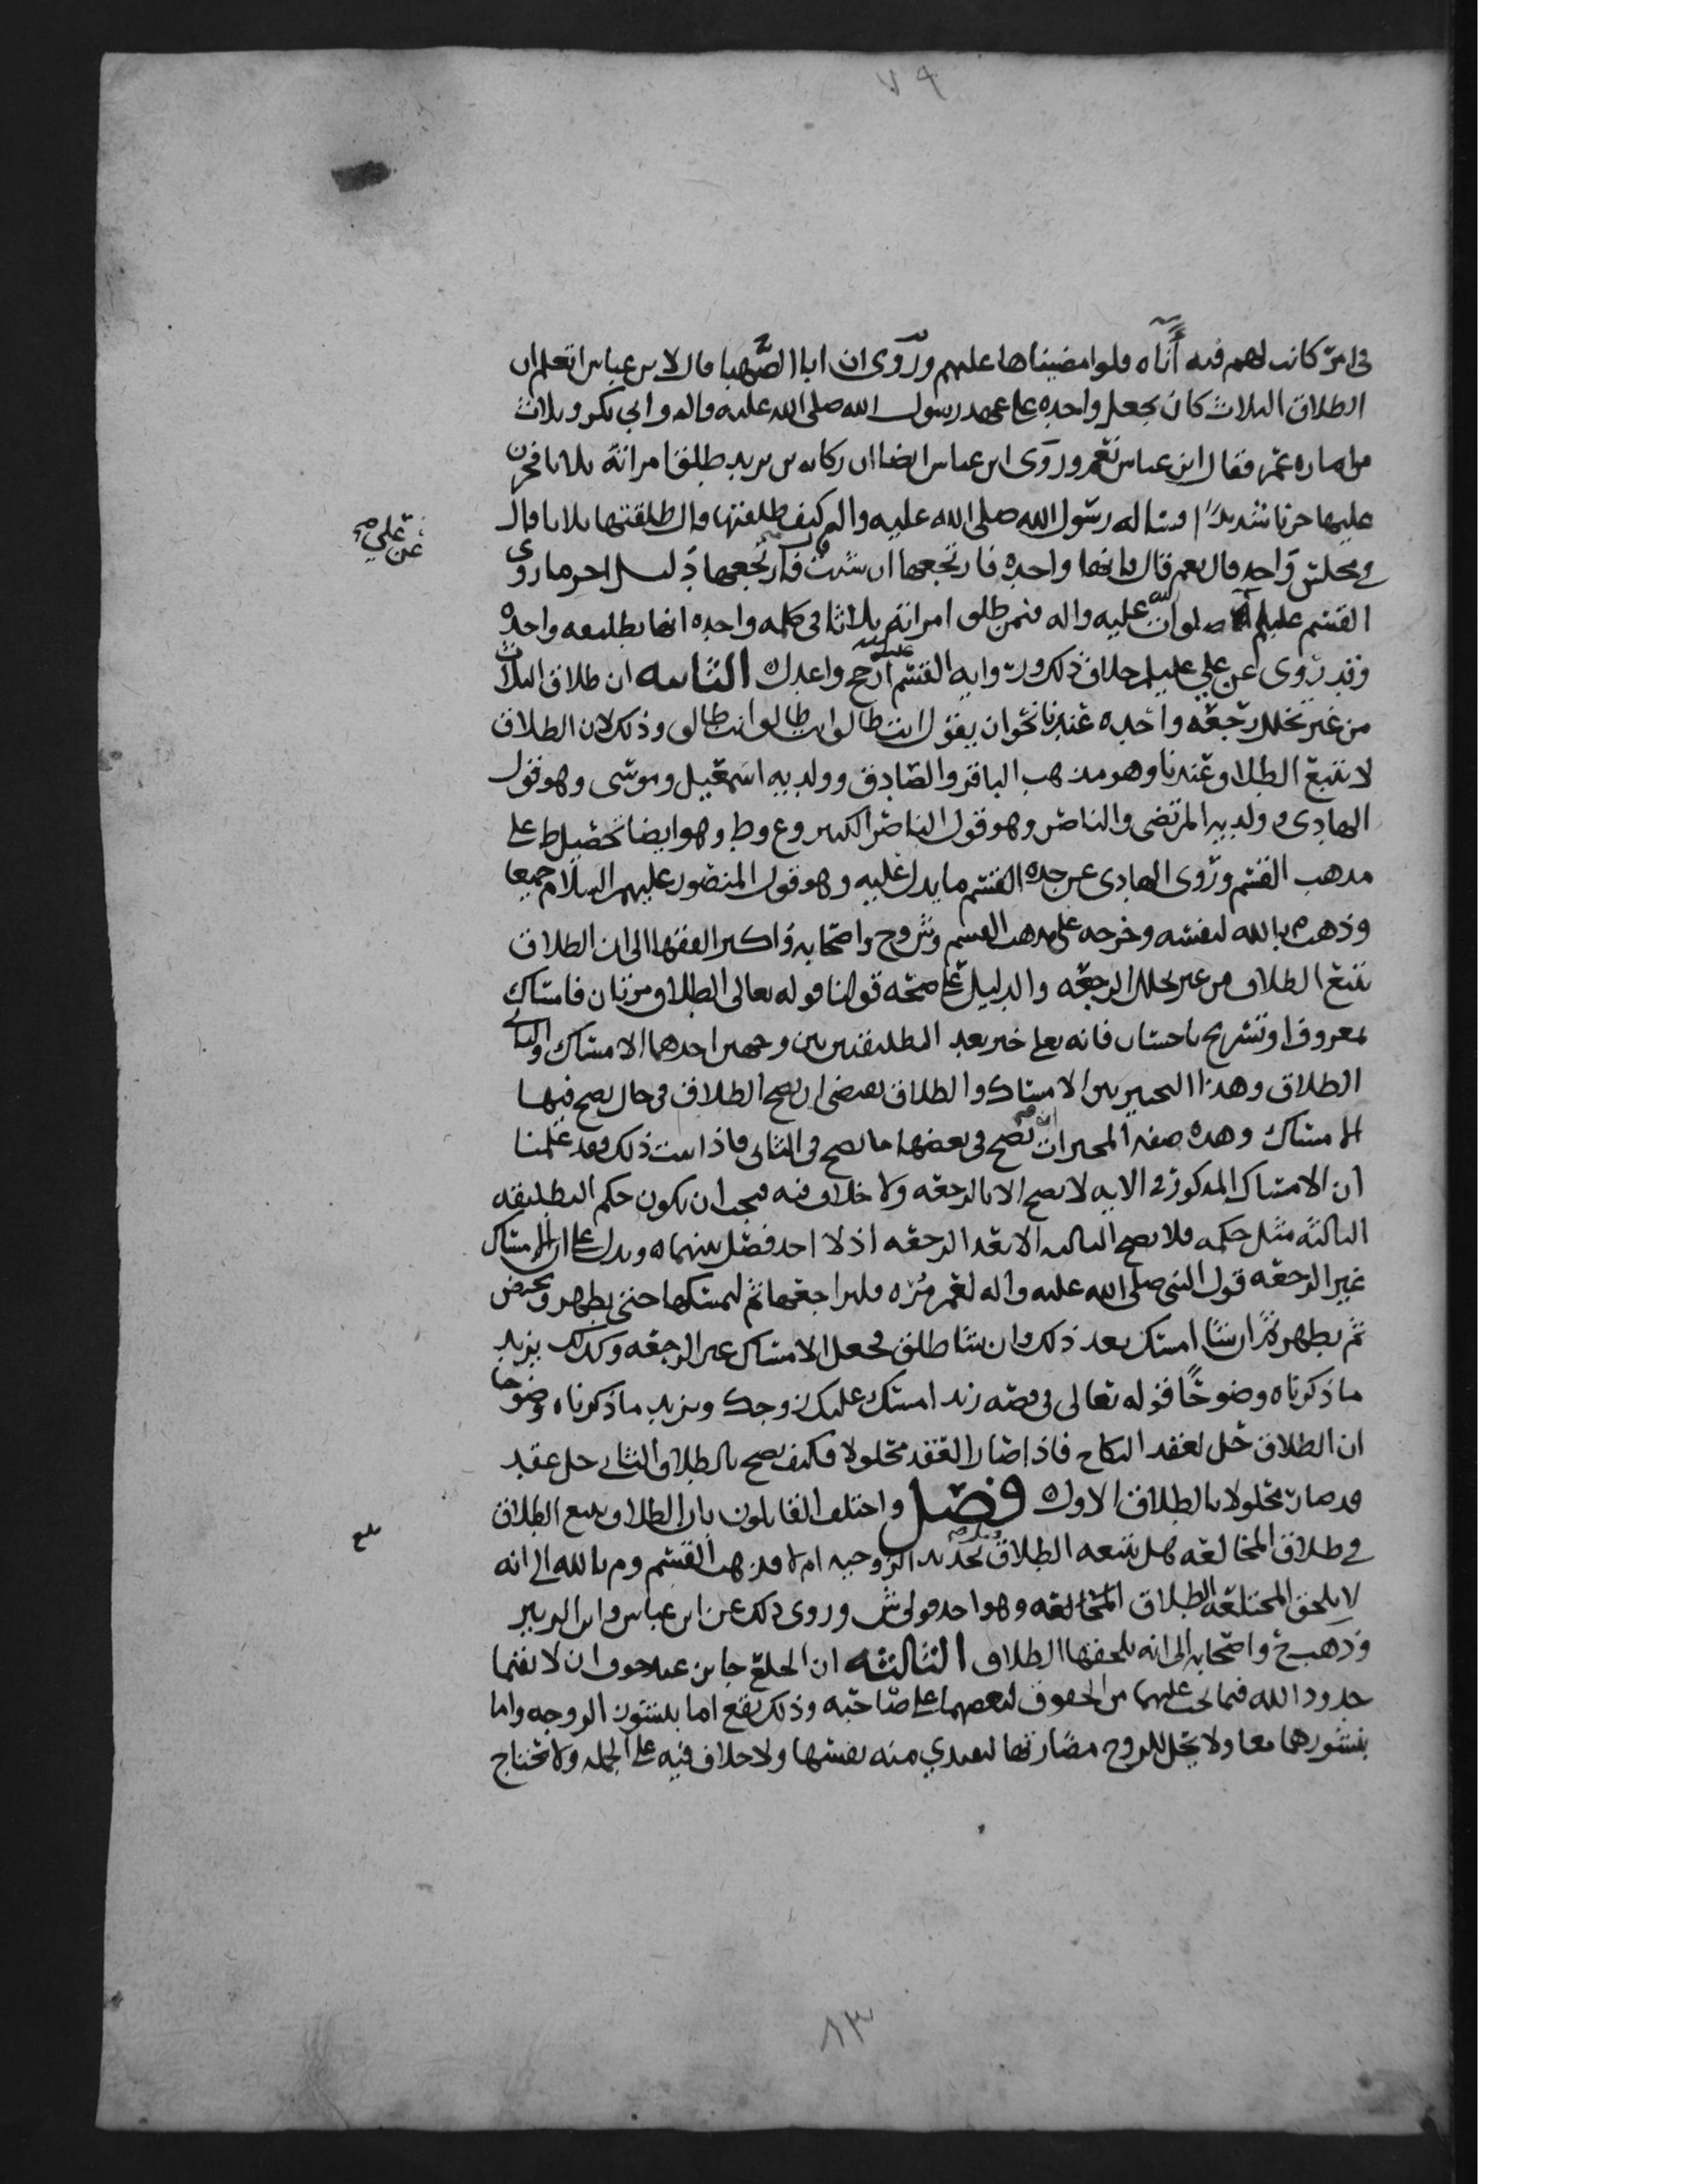 ٧٩
في امرٍ كانت لهم فيه أناه فلو امضيناها عليهم وروى ان ابا الصهبا قال لابن عباس اتعلم ان
الطلاق الثلاث كان يجعل واحده على عهد رسول الله صلى الله عليه واله وابي بكر وثلاث
من اماره عمر فقال ابن عباس نعم وروى ابن عباس ايضا ان ركانه بن يزيد طلق امراته ثلاثا فحزن
عليها حزنا شديدًا فساله رسول الله صلى الله عليه واله كيف طلقتها قال طلقتها ثلاثا قال
في مجلس واحد قال نعم قال فانها واحده فارتجعها ان شئت فارتجعها دليل اخر ما روى
عن علي صح
القسم عليلم صلوات الله عليه واله فيمن طلق امراته ثلاثا في كلمه واحده انها تطليقه واحده
وقد روى عن علي عليلم خلاف ذلك ورواية القسم ارجح واعدل الثانيه ان طلاق الثلاث
من غير تخلل رجعه واحده عندنا نحو ان يقول انت طالق انت طالق انت طالق وذلك لان الطلاق
لا يتبع الطلاق عندنا وهو مذهب الباقر والصادق وولديه اسمعيل وموسى وهو قول
الهادي وولديه المرتضى والناصر وهو قول الناصر الكبير وع وط وهو ايضا تحصيل ط على
مذهب القسم وروى الهادي عن جده القسم ما يدل عليه وهو قول المنصور عليهم السلام جميعا
وذهب م بالله لنفسه وخرجه على مذهب القسم وش وح واصحابه واكثر الفقها الى ان الطلاق
يتبع الطلاق من غير تخلل الرجعه والدليل على صحه قولنا قوله تعالى الطلاق مرتان فامساك
بمعروف او تسريح باحسان فانه تعالى خير بعد التطليقتين بين وجهين احدهما الامساك والثاني
الطلاق وهذا التخيير بين الامساك والطلاق يقتضي ان يصح الطلاق في حال يصح فيها
الامساك وهذه صفه المخيرات ان يصح في بعضها ما يصح في الثاني فاذا ثبت ذلك وقد علمنا
ان الامساك المذكور في الايه لا يصح الا بالرجعه ولا خلاف فيه فيجب ان يكون حكم التطليقه
الثالثه مثل حكمه فلا يصح الثالثه الا بعد الرجعه اذ لا احد فصل بينهما ويدل على ان الامساك
غير الرجعه قول النبي صلى الله عليه واله لعمر مُره فليراجعها ثم ليمسكها حتى تطهر وتحيض
ثم تطهر ثم ان شا امسك بعد ذلك وان شا طلق فجعل الامساك غير الرجعه وكذلك يزيد
ما ذكرناه وضوحًا قوله تعالى في قصه زيد امسك عليك زوجك ويزيد ما ذكرناه وضوحا
ان الطلاق حل لعقد النكاح فاذا صار العقد محلولا فكيف يصح بالطلاق الثاني حل عقد
قد صار محلولا بالطلاق الاول فصل واختلف القايلون بان الطلاق يتبع الطلاق
بلغ
في طلاق المخالعه هل يتبعه الطلاق تجديد الزوجيه ام لا فذهب القسم وم بالله الى انه
لا يلحق المختلعه الطلاق المخالعه وهو احد قولي ش وروى ذلك عن ابن عباس وابن الزبير
وذهب ح واصحابه الى انه يلحقها الطلاق الثالثه ان الخلع جايز عند خوف ان لا يقيما
حدود الله فيما يجب عليهما من الحقوق لبعضهما على صاحبه وذلك يقع اما بنشوز الزوجه واما
بنشوزهما معا ولا يحل للزوج مضارتها لتفتدي منه بنفسها ولا خلاف فيه على الجمله ولا تحتاج
٨٣